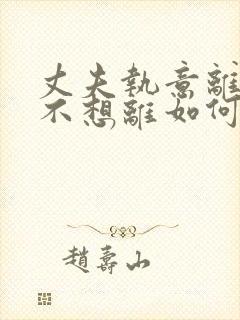 丈夫執意離
不想離如何
趙壽山